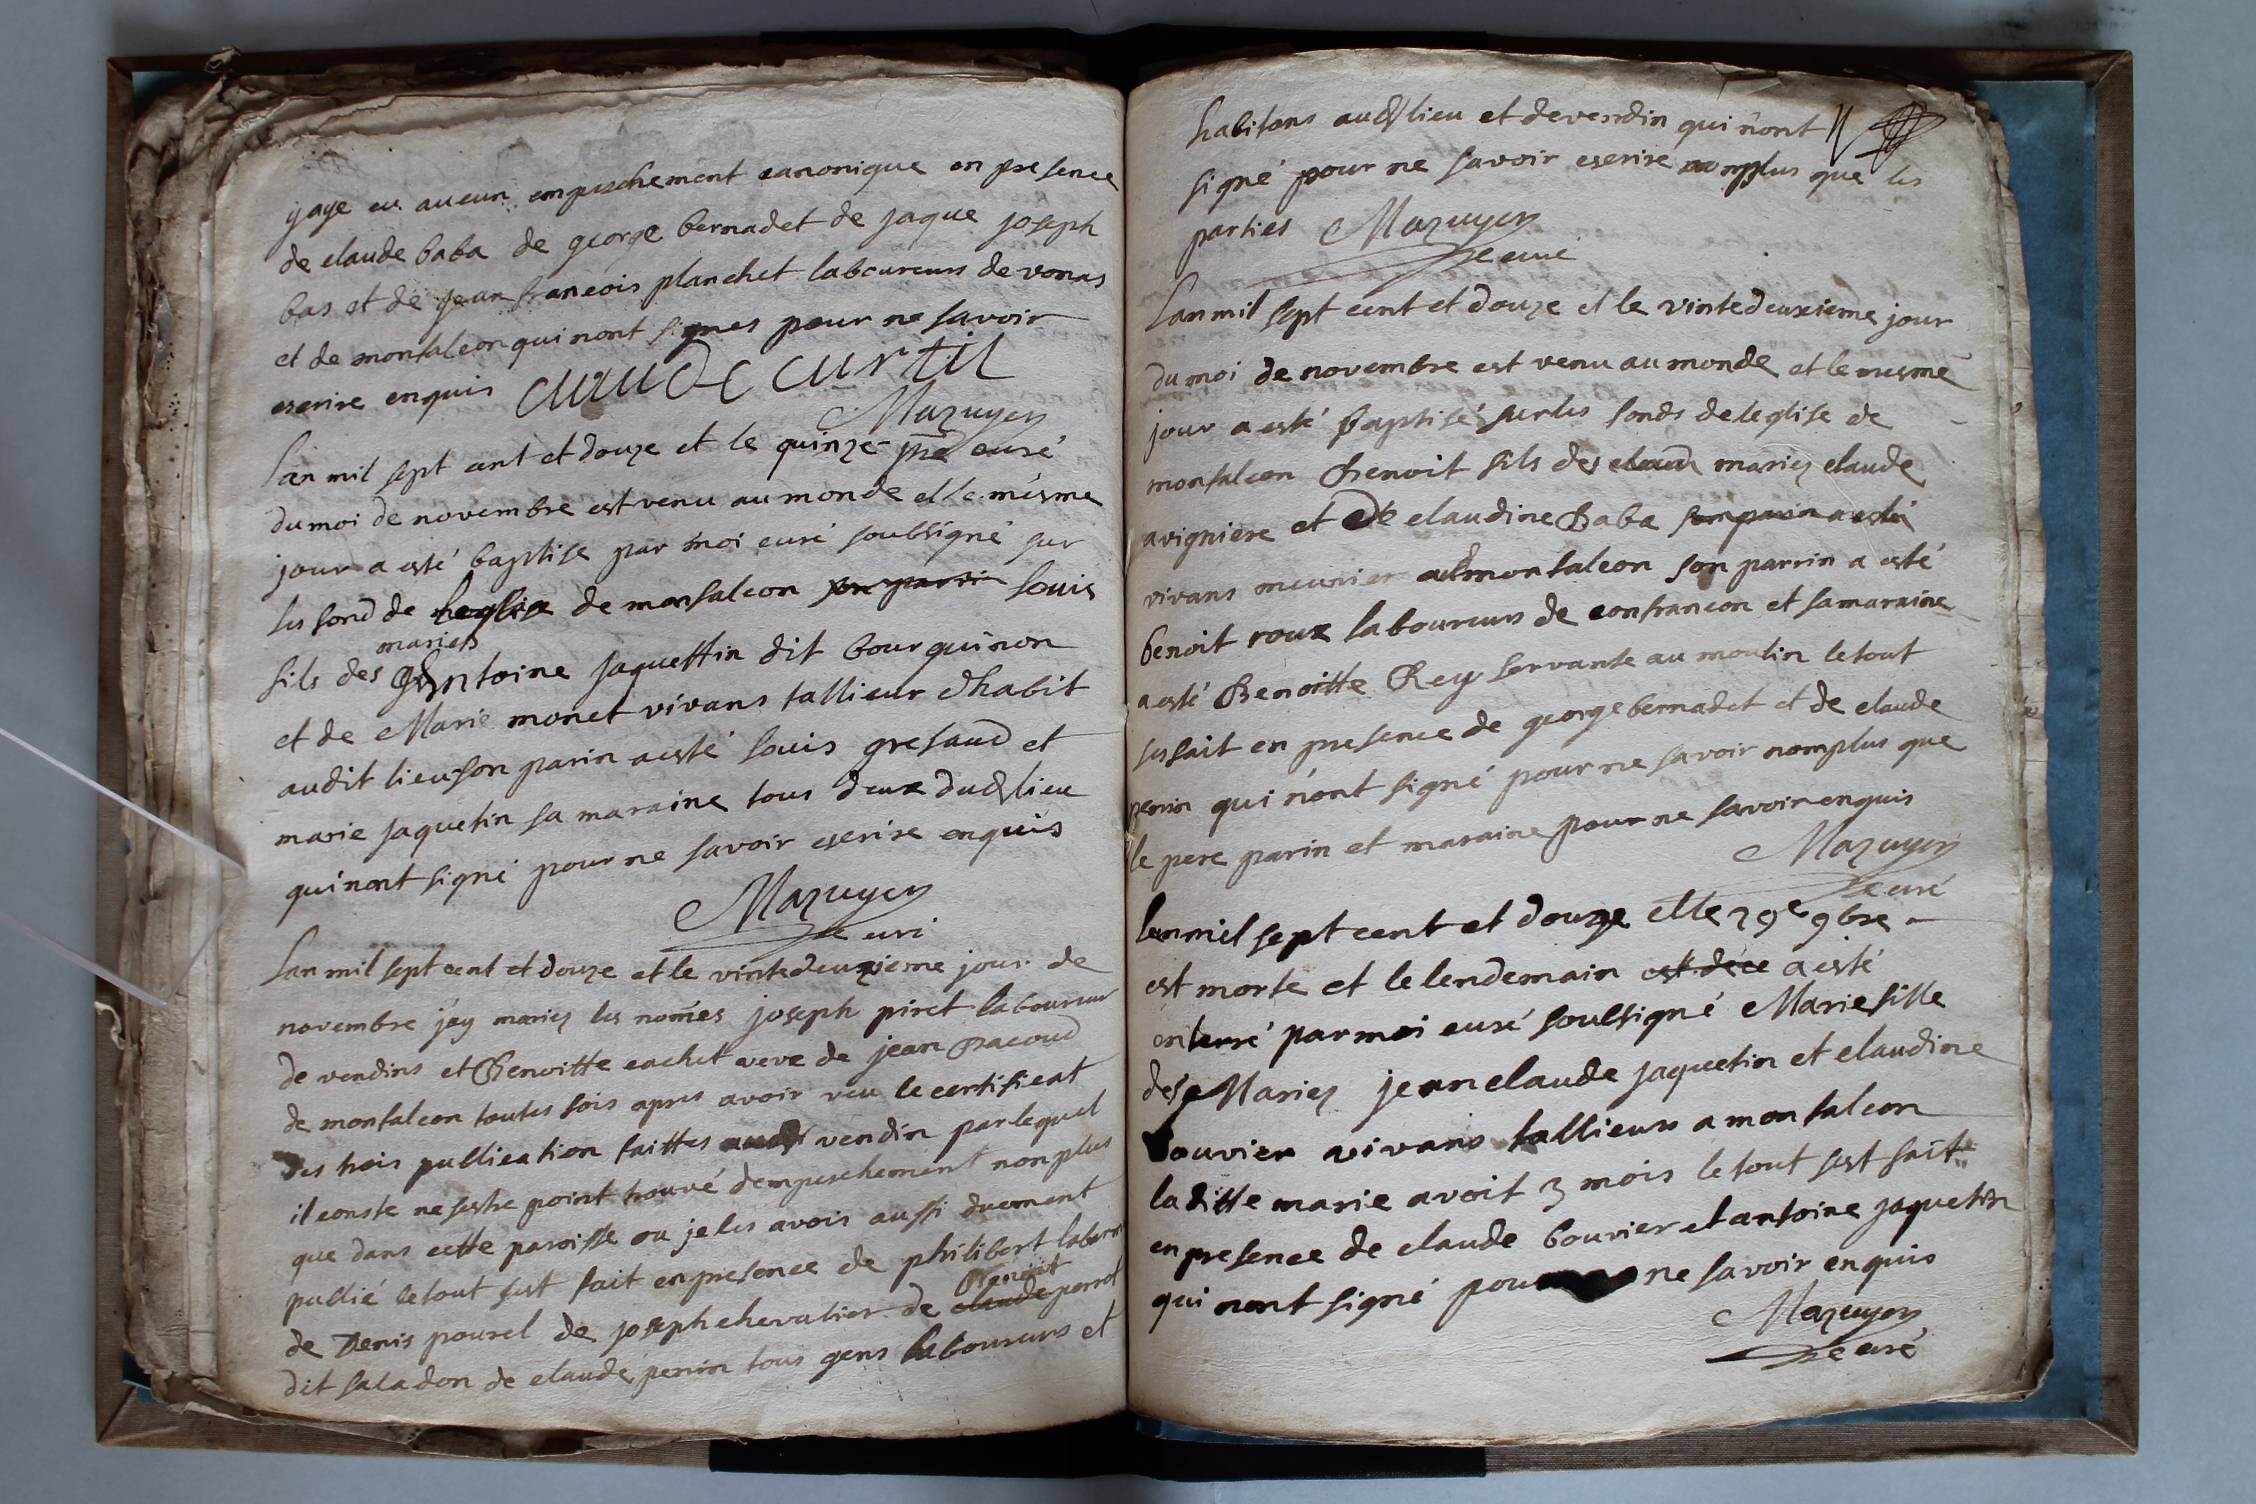 yaye eu aucun empeschement canonique en presence
de claude baba de george bernadet de jaque joseph
bas et de jean francois planchet laboureurs de vonas
et de monfalcon qui nont signes pour ne savoir
escrire enquis claude curtil
Mazuyer
Lan mil sept cent et douze et le quinze pre curé
du moi de novembre est venu au monde et le mesme
jour a esté baptise par moi curé soubsigné sur
les fond de leglise de monfalcon son parrin Louis
mariés
fils des Antoine jaquettin dit bourquinon
et de Marie monet vivans tallieur dhabit
audit lieu son parin a esté Louis gresaud et
marie jaquetin sa maraine tous deux dud lieu
qui nont signé pour ne savoir escrire enquis
Mazuyer
curé
Lan mil sept cent et douze et le vintedeuxieme jour de
novembre jay mariez les nommes joseph piret laboureur
de vendins et Benoitte cachet veve de jean pacoud
de monfalcon toutes fois apres avoir veu le certificat
des trois publication faittes vendin par lequel
il conste ne sestre point trouvé dempeschement non plus
que dans cette paroisse ou je les avois aussi duement
publié le tout sest fait en presence de philibert
Benoit
de Denis pourel de joseph chevalier de claude perrot
dit saladon de claude penin tous gens laboureurs et
habitans aud lieu et de vendin qui n'ont
signé pour ne savoir escrire nomplus que les
parties Mazuyer
curé
Lan mil sept cent et douze et le vintedeuxieme jour
du moi de novembre est venu au monde et le mesme
jour a esté baptisé sur les fonds de leglise de
monfalcon Benoit fils des claude mariez claude
avigniere et de claudine Baba son parrin a esté
vivans meunier a monfalcon son parrin a esté
benoit roux laboureurs de confrancon et sa maraine
a esté Benoitte Rey servante au moulin le tout
ses fait en presence de george bernadet et de claude
penin qui n'ont signé pour ne savoir nomplus que
le pere parin et maraine pour ne savoir enquis
Mazuyer
curé
Lan mil sept cent et douze et le 29e 9bre
est morte et le lendemain est déce a esté
enterré par moi curé soubsigné Marie fille
des Mariez jean claude jaquetin et claudine
bouvier vivans tallieurs a monfalcon
laditte marie avoit 3 mois le tout sest fait
en presence de claude bouvier et antoine jaquetin
qui nont signé pour ne savoir enquis
Mazuyer
curé